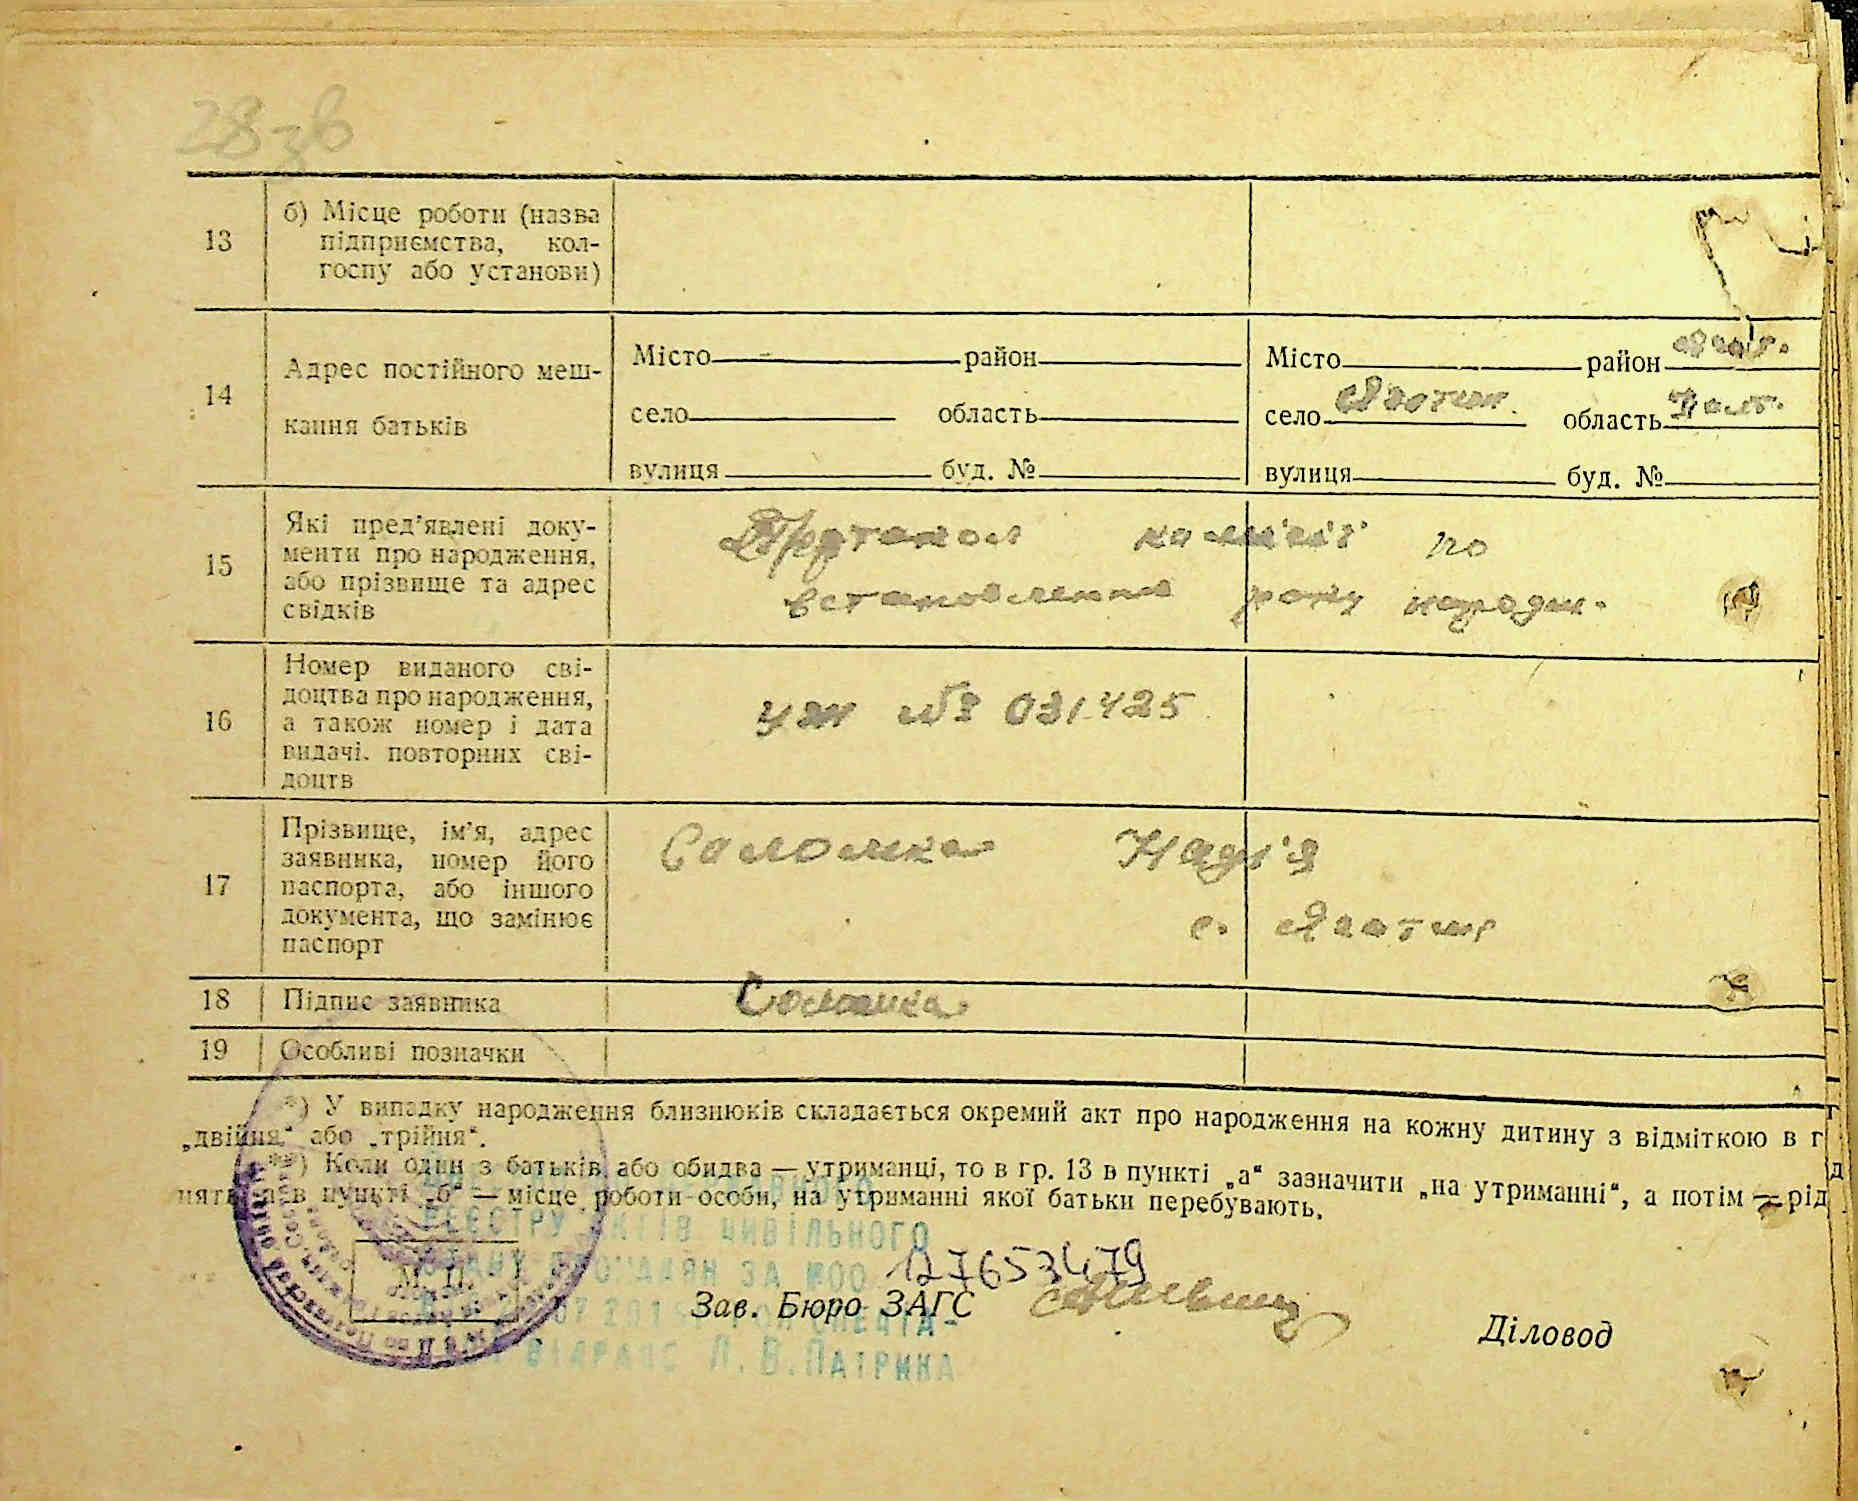 28зв
13
б) Місце роботи (назва
підприємства, кол-
госпу або установи)
14
Адрес постійного меш-
кання батьків
Місто район
село область
вулиця буд. №
Місто район Ягот.
село Яготин область Полт.
вулиця буд. №
15
Які пред'явлені доку-
менти про народження,
або прізвище та адрес
свідків
Протокол комісії по
встановленню року народж.
16
Номер виданого сві-
доцтва про народження,
а також номер і дата
видачі. повторних сві-
доцтв
№ 031425
17
Прізвище, ім'я, адрес
заявника, номер його
паспорта, або іншого
документа, що замінює
паспорт
Соломка Надія
с. Яготин
18
Підпис заявника
Соломка
19
Особливі позначки
*) У випадку народження близнюків складається окремий акт про народження на кожну дитину з відміткою в г
„двійня“ або „трійня“.
**) Коли один з батьків або обидва — утриманці, то в гр. 13 в пункті „а“ зазначити „на утриманні“, а потім — рід
в пункті „б“ — місце роботи особи, на утриманні якої батьки перебувають.
РЕЄСТРУ АКТІВ ЦИВІЛЬНОГО
СТАНУ ГРОМАДЯН ЗА №00
127653479
М. П.
Зав. Бюро ЗАГС
Діловод
Л. В. ПАТРИКА